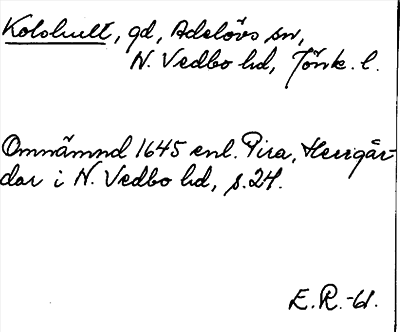 Kolshult, gd, Adelövs sn,
N. Vedbo hd, Jönk. l.
Omnämnd 1645 enl. Pira, Herrgår-
dar i N. Vedbo hd, s. 24.
E. R. -61.